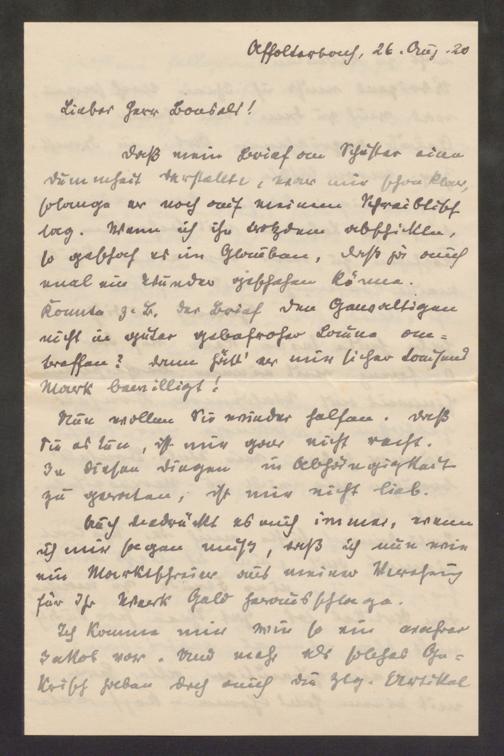 Affolterbach, 26. Aug. 20
Lieber Herr Bonsels!
Daß mein Brief an Schuster eine
Dummheit darstellte, war mir schon klar,
solange er noch auf meinem Schreibtisch
lag. Wenn ich ihn trotzdem abschickte,
so geschah es im Glauben, daß ja auch
mal ein Wunder geschehen könne.
Konnte z. B. der Brief den Gewaltigen
nicht in guter gebefroher Laune an=
treffen? dann hätt' er mir sicher tausend
Mark bewilligt!
Nun wollen Sie wieder helfen. Daß
Sie es tun, ist mir gar nicht recht.
In diesen Dingen in Abhängigkeit
zu geraten, ist mir nicht lieb.
Auch bedrückt es mich immer, wenn
ich mir sagen muß, daß ich nun wie
ein Marktschreier aus meiner Verehrung
für Ihr Werk Geld herausschlage.
Ich komme mir wie so ein wahrer
Jakob vor. Und mehr als solches Ge=
kreisch haben doch auch die zlg. Artikel